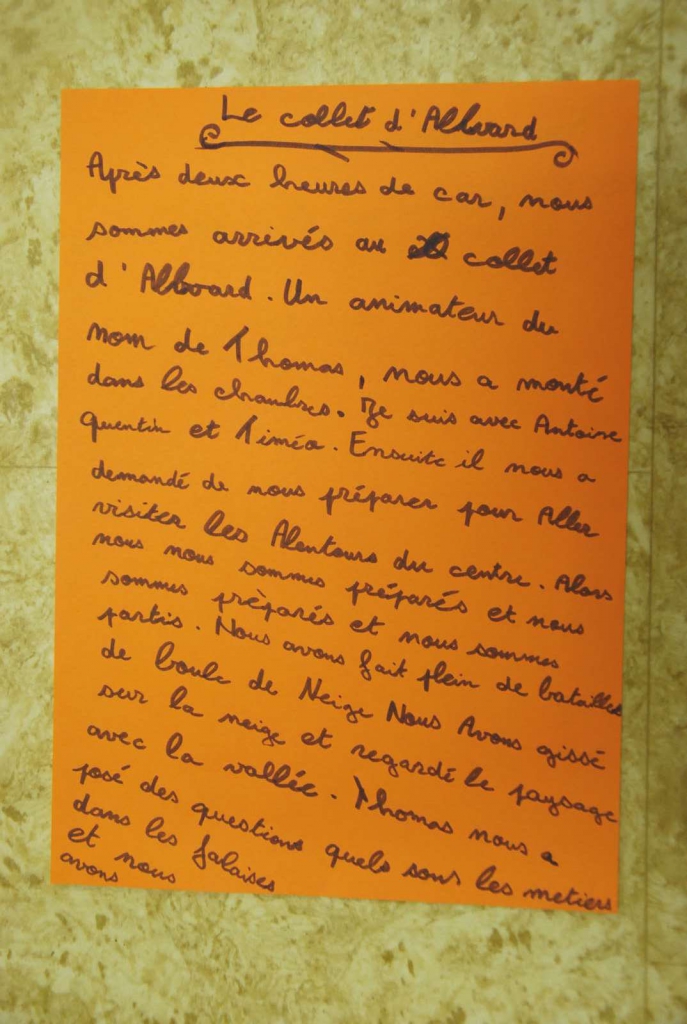 Le collet d'Allevard
Après deux heures de car, nous
sommes arrivés au collet
d'Allevard. Un animateur du
nom de Thomas, nous a monté
dans les chambres. Je suis avec Antoine
quentin et Timéo. Ensuite il nous a
demandé de nous préparer pour Aller
visiter les Alentours du centre. Alors
nous nous sommes préparés et nous
sommes prèparés et nous sommes
partis. Nous avons fait plein de batailles
de boule de Neige Nous Avons gissé
sur la neige et regardé le paysage
avec la vallée. Thomas nous a
posé des questions quels sons les metiers
dans les falaises
et nous
avons